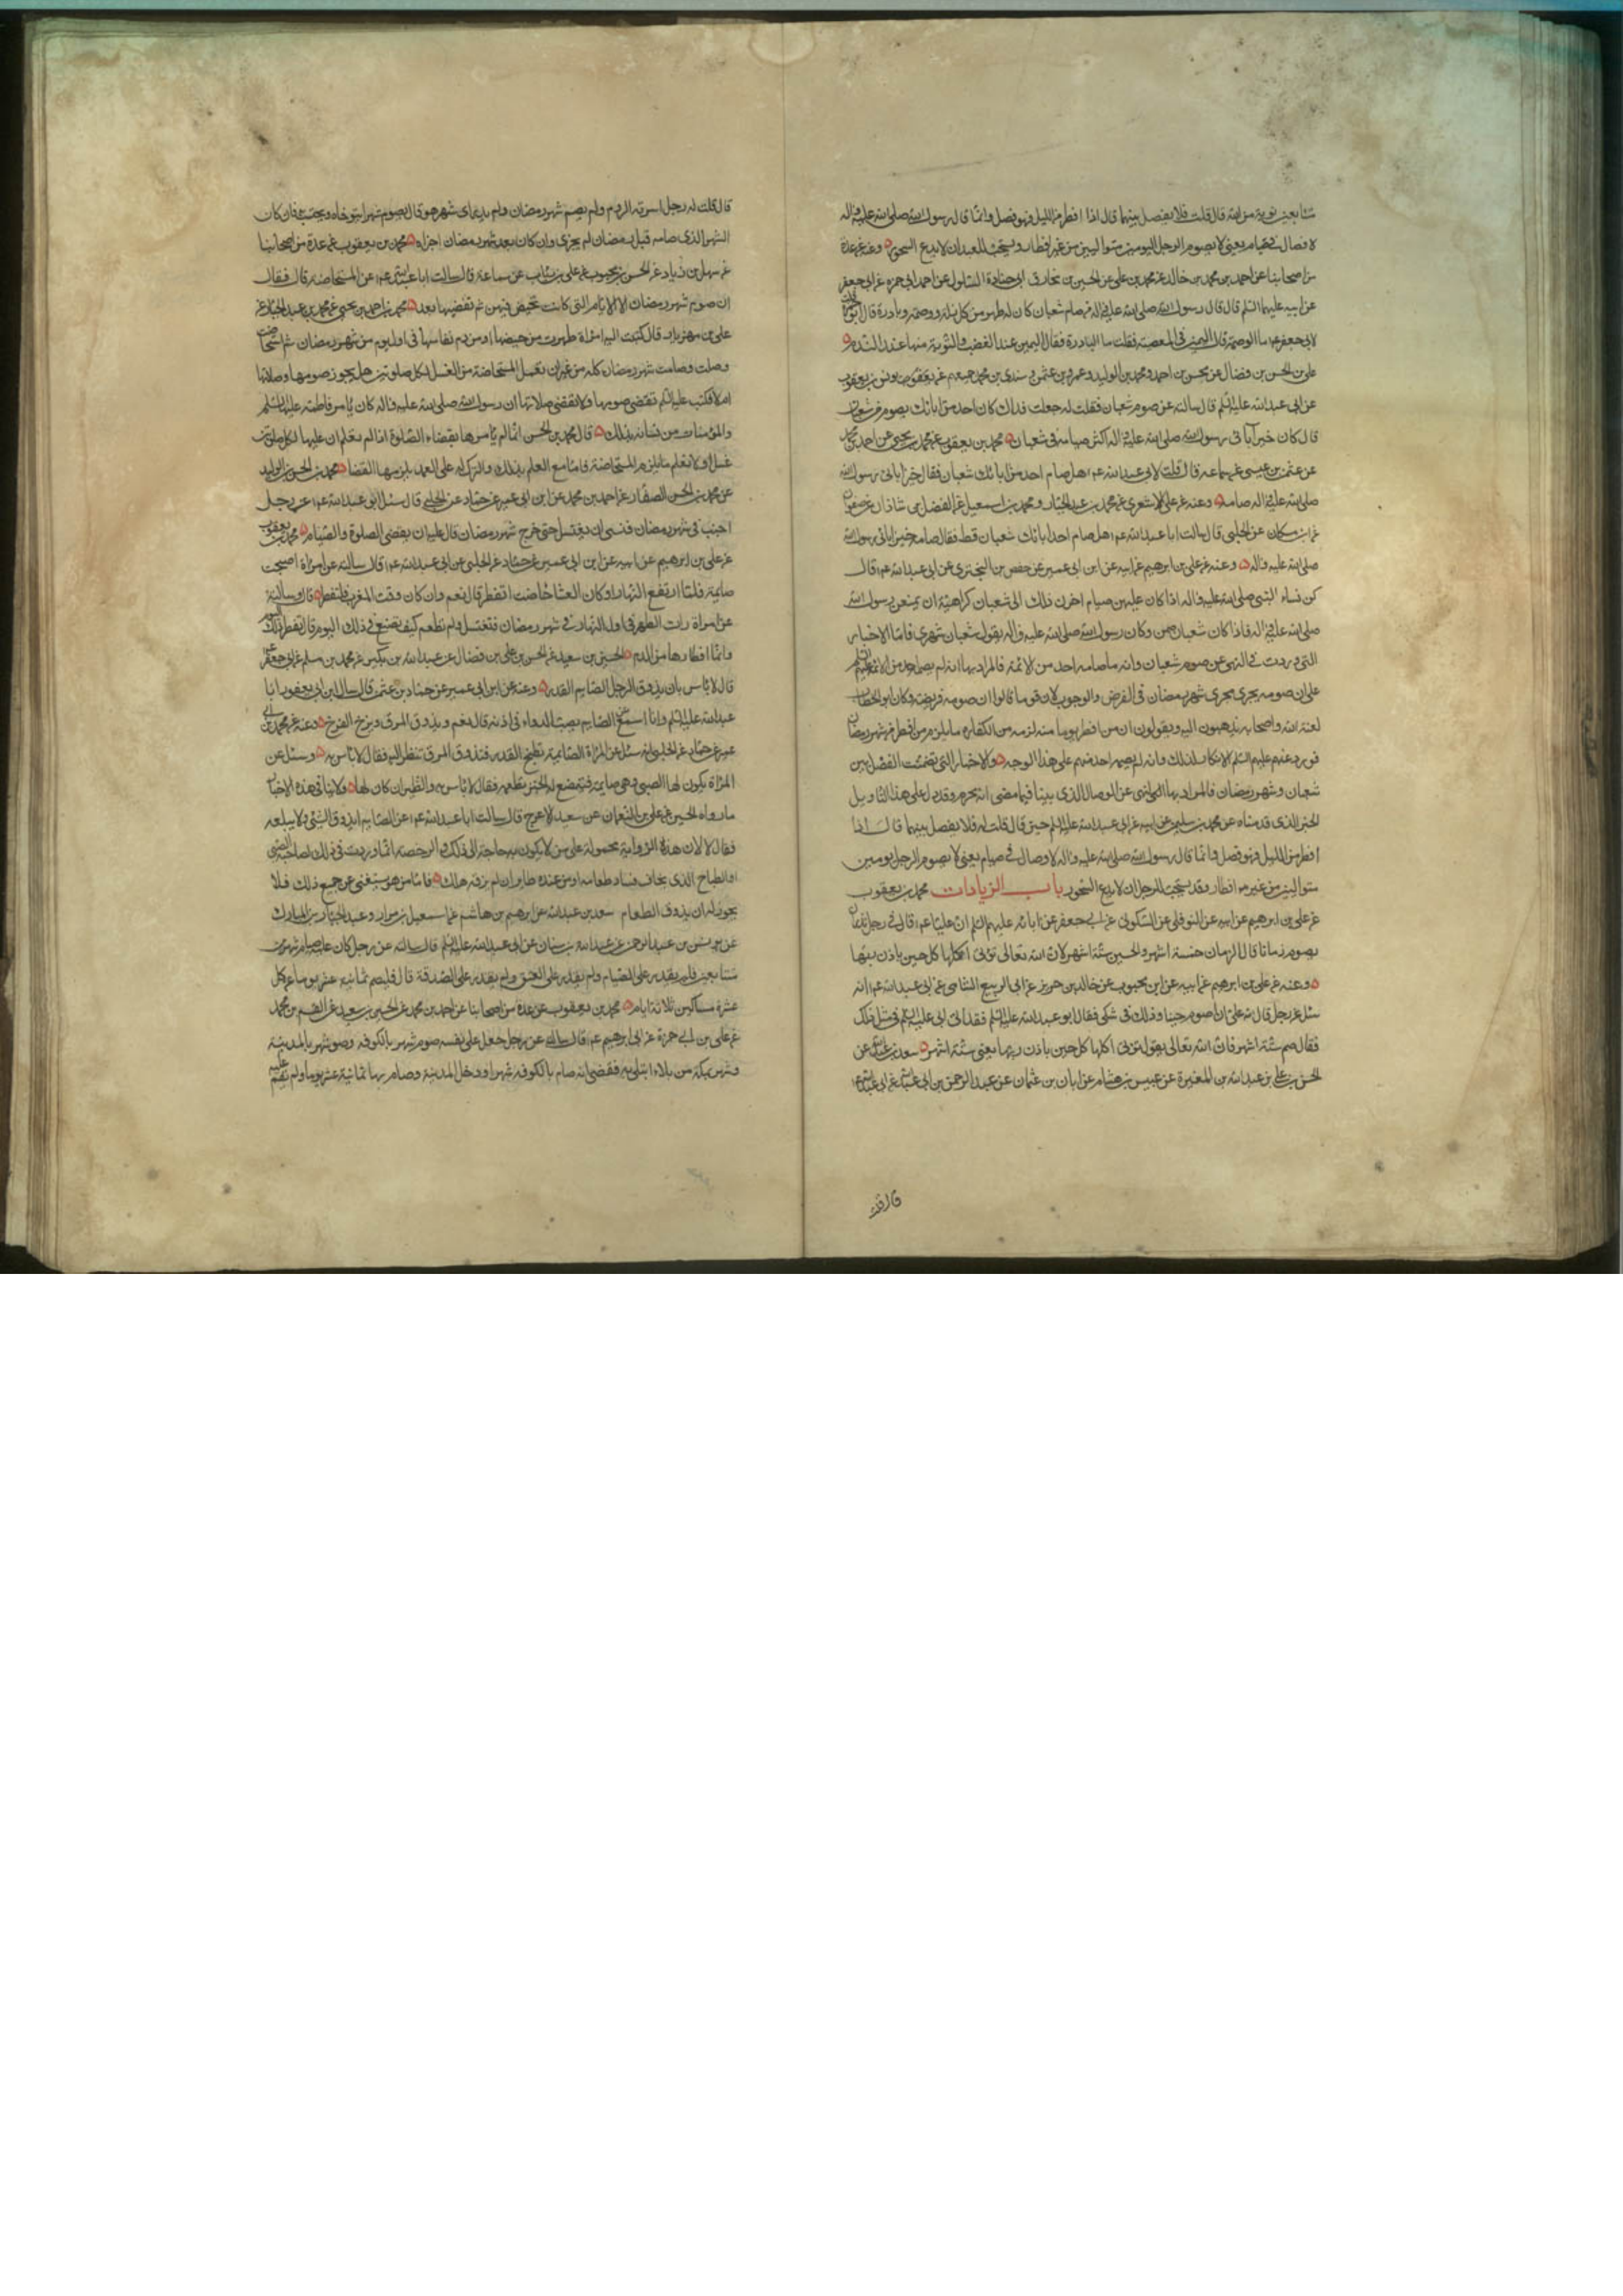 متتابعين توبة من الله قال قلت فلا يفصل بينهما قال اذا افطر من الليل فهو فصل وانما قال رسول الله صلى الله عليه واله
لا وصال في صيام يعني لا يصوم الرجل اليومين متواليين من غير افطار ويستحب للعبد ان لا يدع السحور وعنه عن عدة
من اصحابنا عن احمد بن محمد بن خالد عن محمد بن علي عن الحسين بن مخارق ابي جنادة السلولي عن ابي حمزة عن ابي جعفر
عن ابيه عليهما السلم قال قال رسول الله صلى الله عليه واله من صام شعبان كان له طهور من كل زلة ووصمة وبادرة قال ابو حمزة
لابي جعفر عم ما الوصمة قال اليمين في المعصية فقلت ما البادرة فقال اليمين عند الغضب والتوبة منها عند الندم
علي بن الحسن بن فضال عن محسن بن احمد ومحمد بن الوليد وعمرو بن عثمن وسندي بن محمد جميعهم عن يونس بن يعقوب
عن ابي عبد الله عليه السلم قال سالته عن صوم شعبان فقلت له جعلت فداك كان احد من ابائك يصوم شعبان
قال كان خير ابائي رسول الله صلى الله عليه واله اكثر صيامه في شعبان محمد بن يعقوب عن محمد بن يحيى عن احمد بن محمد
عن عثمن بن عيسى عن سماعة قال قلت لابي عبد الله عم هل صام احد من ابائك شعبان فقال خير ابائي رسول الله
صلى الله عليه واله صامه وعنه عن ابي علي الاشعري عن محمد بن عبد الجبار ومحمد بن اسمعيل عن الفضل بن شاذان عن صفوان
عن ابن مسكان عن الحلبي قال سالت ابا عبد الله عم هل صام احد ابائك شعبان قط فقال صامه خير ابائي رسول الله
صلى الله عليه واله وعنه عن علي بن ابرهيم عن ابيه عن ابن ابي عمير عن حفص بن البختري عن ابي عبد الله عم قال
كن نساء النبي صلى الله عليه واله اذا كان عليهن صيام اخرن ذلك الى شعبان كراهية ان يمنعن رسول الله
صلى الله عليه واله فاذا كان شعبان صمن وكان رسول الله صلى الله عليه واله يقول شعبان شهري فاما الاخبار
التي وردت في النهي عن صوم شعبان وانه ما صامه احد من الائمة فالمراد بها انه لم يصمه احد من الائمة عليهم السلم
على ان صومه يجري مجرى شهر رمضان في الفرض والوجوب لان قوما قالوا ان صومه فريضة وكان ابو الخطاب
لعنه الله واصحابه يذهبون اليه ويقولون ان من افطر يوما منه لزمه من الكفارة ما يلزم من افطر من شهر رمضان
فورد عنهم عليهم السلم الانكار لذلك وانه لم يصمه احد منهم على هذا الوجه والاخبار التي تضمنت الفصل بين
شعبان وشهر رمضان فالمراد بها النهي عن الوصال الذي بينا فيما مضى انه محرم وقد دل على هذا التاويل
الخبر الذي قدمناه عن محمد بن سليمن عن ابيه عن ابي عبد الله عليه السلم حين قال قلت له فلا يفصل بينهما قال اذا
افطر من الليل فهو فصل وانما قال رسول الله صلى الله عليه واله لا وصال في صيام يعني لا يصوم الرجل يومين
متواليين من غير افطار وقد يستحب للرجل ان لا يدع السحور باب الزيادات محمد بن يعقوب
عن علي بن ابرهيم عن ابيه عن النوفلي عن السكوني عن ابي جعفر عن ابائه عليهم السلم ان عليا عم قال في رجل نذر ان
يصوم زمانا قال الزمان خمسة اشهر والحين ستة اشهر لان الله تعالى تؤتي اكلها كل حين باذن ربها
وعنه عن علي بن ابرهيم عن ابيه عن ابن محبوب عن خالد بن جرير عن ابي الربيع الشامي عن ابي عبد الله عم انه
سئل عن رجل قال لله علي ان اصوم حينا وذلك في شكر فقال ابو عبد الله عليه السلم قد اتي ابي عليه السلم في مثل ذلك
فقال صم ستة اشهر فان الله تعالى يقول تؤتي اكلها كل حين باذن ربها يعني ستة اشهر سعد بن عبد الله عن
الحسن بن علي بن عبد الله بن المغيرة عن عبيس بن هشام عن ابان بن عثمان عن عبد الرحمن بن ابي عبد الله عن ابي عبد الله عم
قال قلت
قال قلت له رجل اسرته الروم ولم يصم شهر رمضان ولم يدر اي شهر هو قال يصوم شهرا يتوخاه ويحتسب فان كان
الشهر الذي صامه قبل رمضان لم يجزي وان كان بعد شهر رمضان اجزاه محمد بن يعقوب عن عدة من اصحابنا
عن سهل بن زياد عن الحسن بن محبوب عن علي بن رئاب عن سماعة قال سالت ابا عبد الله عم عن المستحاضة قال فقال
ان صوم شهر رمضان الا الايام التي كانت تحيض فيهن ثم تقضيها بعد محمد بن احمد بن يحيى عن محمد بن عبد الجبار عن
علي بن مهزيار قال كتبت اليه امراة طهرت من حيضها او من دم نفاسها في اول يوم من شهر رمضان ثم استحاضت
وصلت وصامت شهر رمضان كله من غير ان تعمل المستحاضة من الغسل لكل صلوتين هل يجوز صومها وصلاتها
ام لا فكتب عليه السلم تقضي صومها ولا تقضي صلاتها ان رسول الله صلى الله عليه واله كان يامر فاطمة عليها السلم
والمؤمنات من نسائه بذلك قال محمد بن الحسن انما لم يامرها بقضاء الصلوة اذا لم تعلم ان عليها لكل صلوتين
غسلا ولا تعلم ما يلزم المستحاضة فاما مع العلم بذلك والترك له على العمد يلزمها القضا محمد بن الحسن بن الوليد
عن محمد بن الحسن الصفار عن احمد بن محمد عن ابن ابي عمير عن حماد عن الحلبي قال سئل ابو عبد الله عم عن رجل
اجنب في شهر رمضان فنسي ان يغتسل حتى خرج شهر رمضان قال عليه ان يقضي الصلوة والصيام محمد بن يعقوب
عن علي بن ابرهيم عن ابيه عن ابن ابي عمير عن حماد عن الحلبي عن ابي عبد الله عم قال سالته عن امراة اصبحت
صايمة فلما ارتفع النهار او كان العشا حاضت اتفطر قال نعم وان كان وقت المغرب فلتفطر قال وسالته
عن امراة رات الطهر في اول النهار في شهر رمضان فتغتسل ولم تطعم كيف تصنع في ذلك اليوم قال تفطر ذلك اليوم
وانما افطارها من الدم الحسين بن سعيد عن الحسن بن علي بن فضال عن عبد الله بن بكير عن محمد بن مسلم عن ابي جعفر عم
قال لا باس بان يذوق الرجل الصايم القدر وعنه عن ابن ابي عمير عن حماد بن عثمن قال سال ابن ابي يعفور ابا
عبد الله عليه السلم وانا اسمع عن الصايم يصب الدواء في اذنه قال نعم ويذوق المرق ويزق الفرخ وعنه عن محمد بن ابي
عمير عن حماد عن الحلبي انه سئل عن المراة الصائمة تطبخ القدر فتذوق المرق تنظر اليه فقال لا باس به وسئل عن
المراة يكون لها الصبي وهي صايمة فتمضغ له الخبز تطعمه فقال لا باس به والطير ان كان لها ولا ينافي هذه الاخبار
ما رواه الحسين عن علي بن النعمان عن سعيد الاعرج قال سالت ابا عبد الله عم عن الصايم ايذوق الشئ ولا يبلعه
فقال لا لان هذه الرواية محمولة على من لا يكون به حاجة الى ذلك والرخصة انما وردت في ذلك لصاحبة الصبي
او الطباخ الذي يخاف فساد طعامه او من عنده طاير ان لم يزقه هلك فاما من هو مستغني عن جميع ذلك فلا
يجوز له ان يذوق الطعام سعد بن عبد الله عن ابرهيم بن هاشم عن اسمعيل بن مرار وعبد الجبار بن المبارك
عن يونس بن عبد الرحمن عن عبد الله بن سنان عن ابي عبد الله عليه السلم قال سالته عن رجل كان عليه صيام شهرين
متتابعين فلم يقدر على الصيام ولم يقدر على العتق ولم يقدر على الصدقة قال فليصم ثمانية عشر يوما عن كل
عشرة مساكين ثلاثة ايام محمد بن يعقوب عن عدة من اصحابنا عن احمد بن محمد عن الحسين بن سعيد عن القسم بن محمد
عن علي بن ابي حمزة عن ابي ابرهيم عم قال سالته عن رجل جعل على نفسه صوم شهر بالكوفة وصوم شهر بالمدينة
وشهر بمكة من بلاء ابتلي به فقضى انه صام بالكوفة شهرا ودخل المدينة وصام بها ثمانية عشر يوما ولم يقم عليه